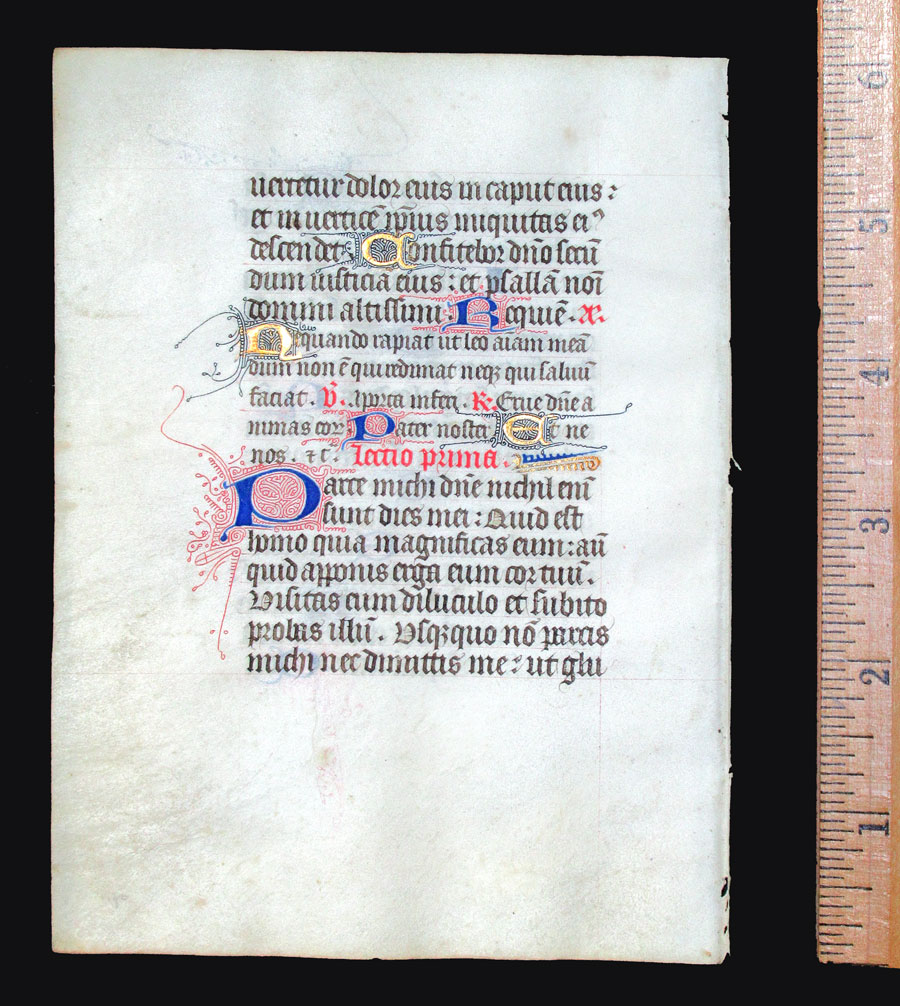 uertetur dolor eius in caput eius :
et in uerticē ip̄ius iniquitas eiꝰ
descendet. Confitebor dn̄o secū
dum iusticiā eius : et psallā noī
domini altissimi. Requiē. A.
Nequando rapiat ut leo aīam meā
dum non ē qui redimat neqꝫ qui saluū
faciat. V. A porta inferi. R. Erue dn̄e a
nimas eorꝝ Pater noster Et ne
nos. ⁊c̄. Lectio prima.
Parce michi dn̄e nichil enī
sunt dies mei : Quid est
homo quia magnificas eum : aū
quid apponis erga eum cor tuū.
Visitas eum diluculo et subito
probas illū. Vsqꝫquo nō parcis
michi nec dimittis me : ut glu
6
5
4
3
2
1